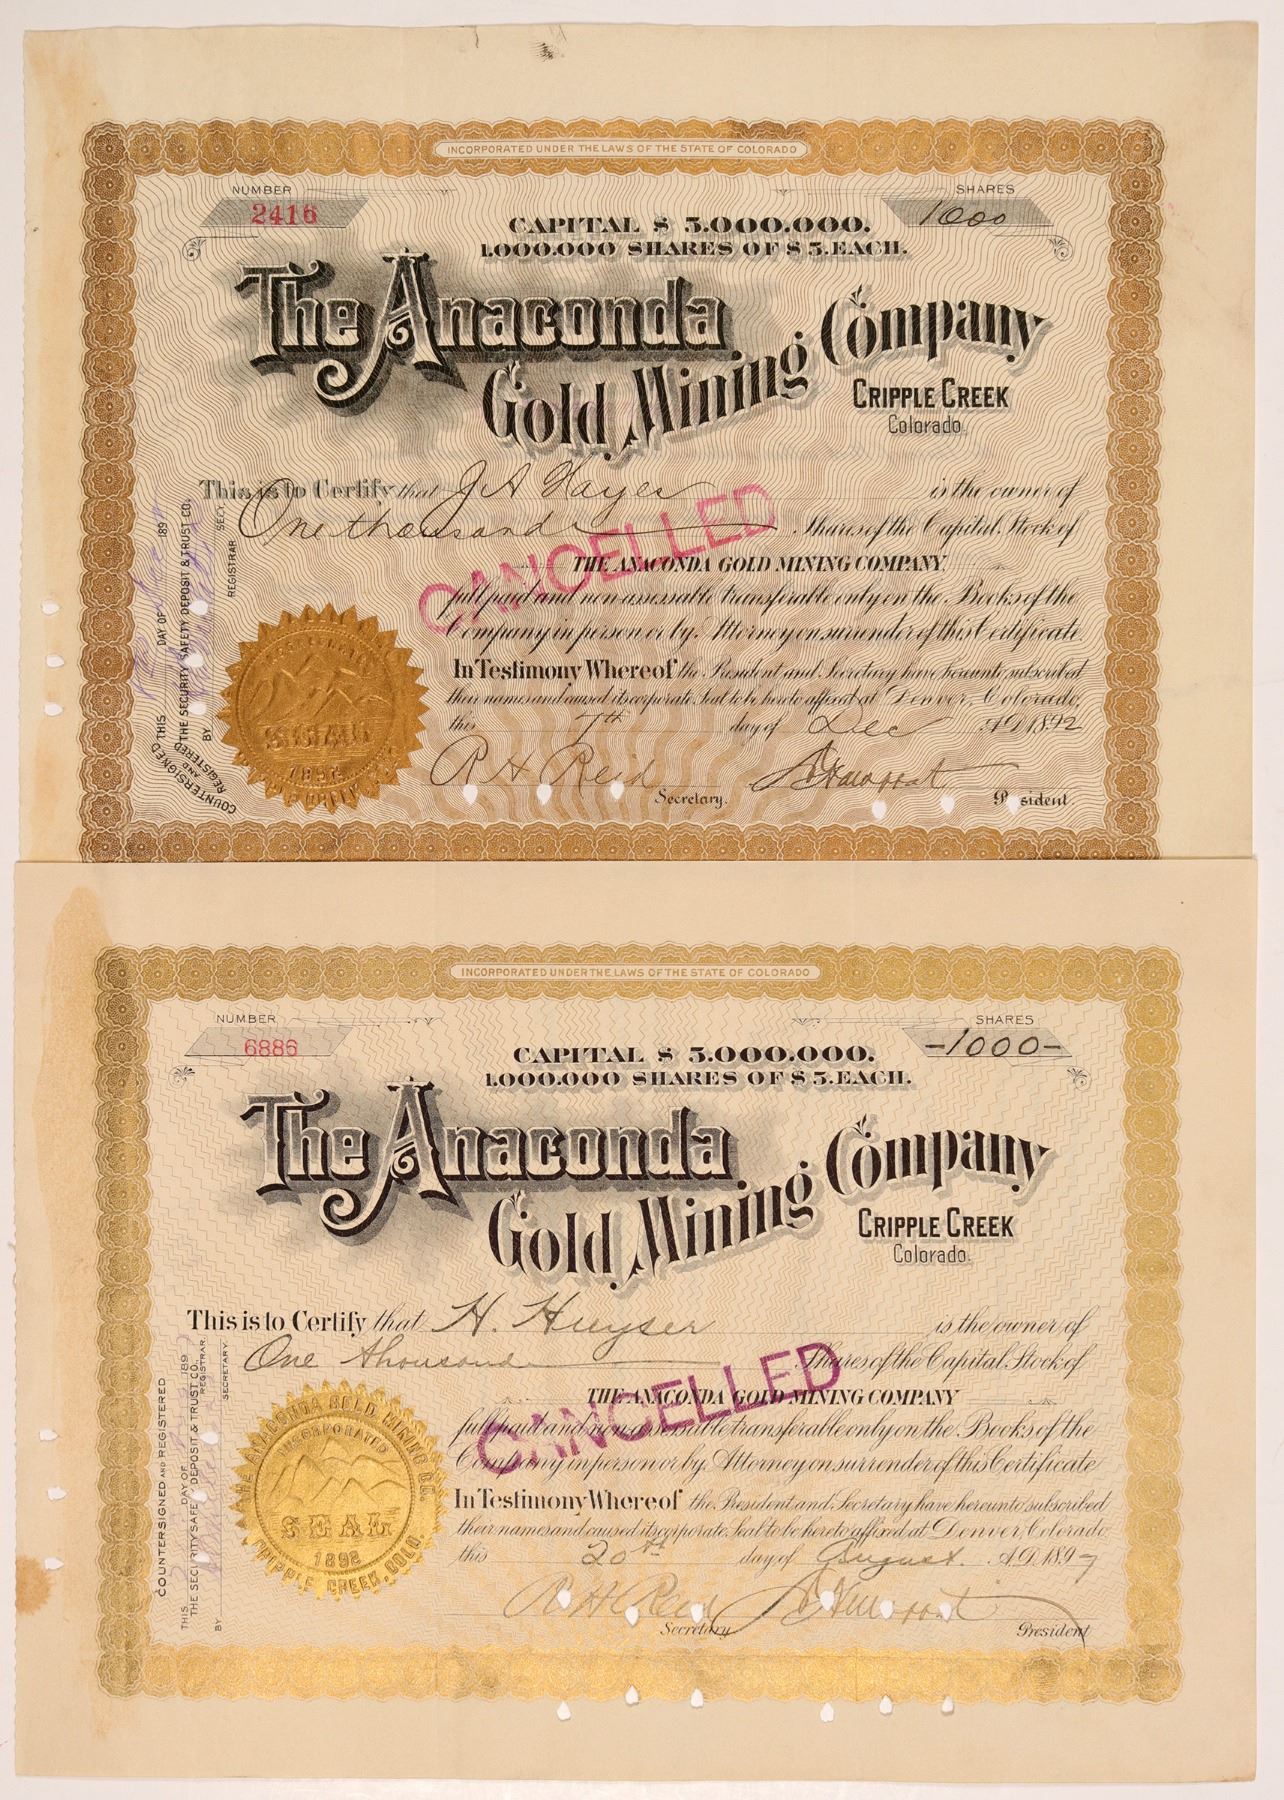 INCORPORATED UNDER THE LAWS OF THE STATE OF COLORADO
NUMBER
2416
SHARES
1000
CAPITAL $ 5.000.000.
1.000.000 SHARES OF $ 5. EACH.
The Anaconda
Gold Mining
Company
CRIPPLE CREEK
Colorado.
This is to Certify that J A Hayes is the owner of
One thousand Shares of the Capital Stock of
THE ANACONDA GOLD MINING COMPANY
full paid and non assessable transferable only on the Books of the
Company in person or by Attorney on surrender of this Certificate
In Testimony Whereof the President and Secretary have hereunto subscribed
their names and caused its corporate Seal to be hereto affixed at Denver, Colorado,
this 7th day of Dec A.D. 1892
R H Reid
Secretary.
President
CANCELLED
COUNTERSIGNED AND REGISTERED
THIS DAY OF 189
THE SECURITY SAFETY DEPOSIT & TRUST CO.
BY
REGISTRAR
SEC'Y
INCORPORATED UNDER THE LAWS OF THE STATE OF COLORADO
NUMBER
6886
SHARES
-1000-
CAPITAL $ 5.000.000.
1.000.000 SHARES OF $ 5. EACH.
The Anaconda
Gold Mining
Company
CRIPPLE CREEK
Colorado.
This is to Certify that H. Huyser is the owner of
One thousand Shares of the Capital Stock of
THE ANACONDA GOLD MINING COMPANY
full paid and non assessable transferable only on the Books of the
Company in person or by Attorney on surrender of this Certificate
In Testimony Whereof the President and Secretary have hereunto subscribed
their names and caused its corporate Seal to be hereto affixed at Denver, Colorado
this 20th day of August A.D. 1897
R H Reid
Secretary
President
CANCELLED
COUNTERSIGNED AND REGISTERED
THIS DAY OF 189
THE SECURITY SAFETY DEPOSIT & TRUST CO.
REGISTRAR
BY
SECRETARY
THE ANACONDA GOLD MINING CO.
INCORPORATED
SEAL
1892
CRIPPLE CREEK, COLO.